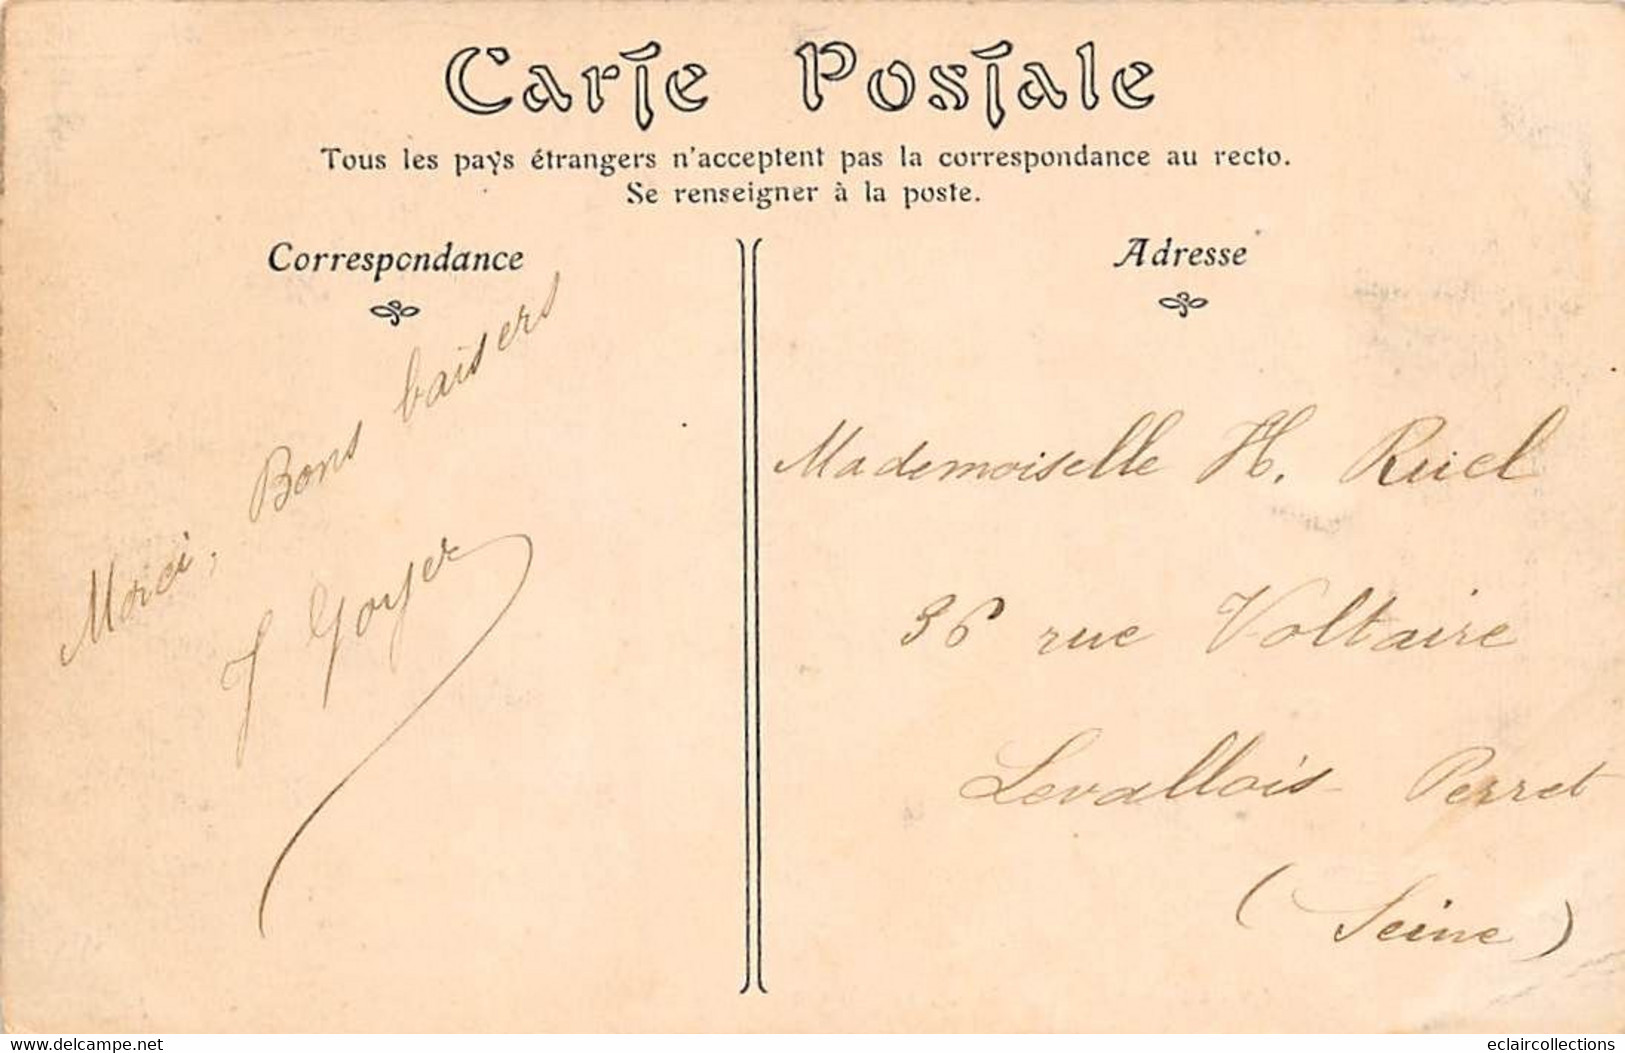 Carte Postale
Tous les pays étrangers n'acceptent pas la correspondance au recto.
Se renseigner à la poste.
Correspondance
Merci, Bons baisers
J Goyer
Adresse
Mademoiselle H. Ruel
36 rue Voltaire
Levallois-Perret
(Seine)
www.delcampe.net
eclaircollections